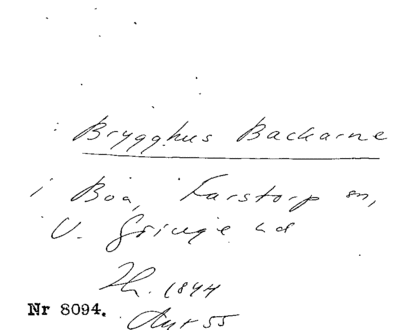 Brygghus Backarne
i Boa, Farstorp sn,
V. Göinge hd
Lh. 1844
Nr 8094. Akt 55